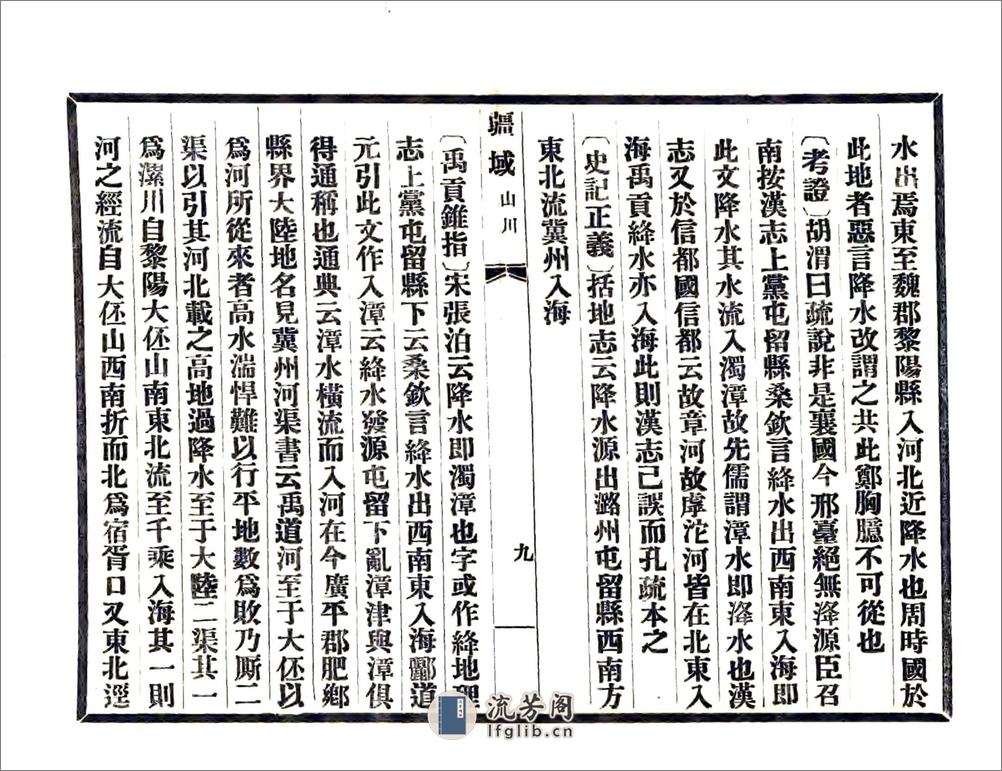 水出焉東至魏郡黎陽縣入河北近降水也周時國於
此地者惡言降水改謂之共此鄭胸臆不可從也
〔考證〕胡渭曰疏說非是襄國今邢臺絕無洚源臣召
南按漢志上黨屯留縣桑欽言絳水出西南東入海即
此文降水其水流入濁漳故先儒謂漳水即洚水也漢
志又於信都國信都云故章河故虖沱河皆在北東入
海禹貢絳水亦入海此則漢志已誤而孔疏本之
〔史記正義〕括地志云降水源出潞州屯留縣西南方
東北流冀州入海
疆域 山川 九
〔禹貢錐指〕宋張洎云降水即濁漳也字或作絳地理
志上黨屯留縣下云桑欽言絳水出西南東入海酈道
元引此文作入漳云絳水發源屯留下亂漳津與漳俱
得通稱也通典云漳水橫流而入河在今廣平郡肥鄉
縣界大陸地名見冀州河渠書云禹道河至于大伾以
為河所從來者高水湍悍難以行平地數為敗乃厮二
渠以引其河北載之高地過降水至于大陸二渠其一
為漯川自黎陽大伾山南東北流至千乘入海其一則
河之經流自大伾山西南折而北為宿胥口又東北逕
流芳阁
lfglib.cn